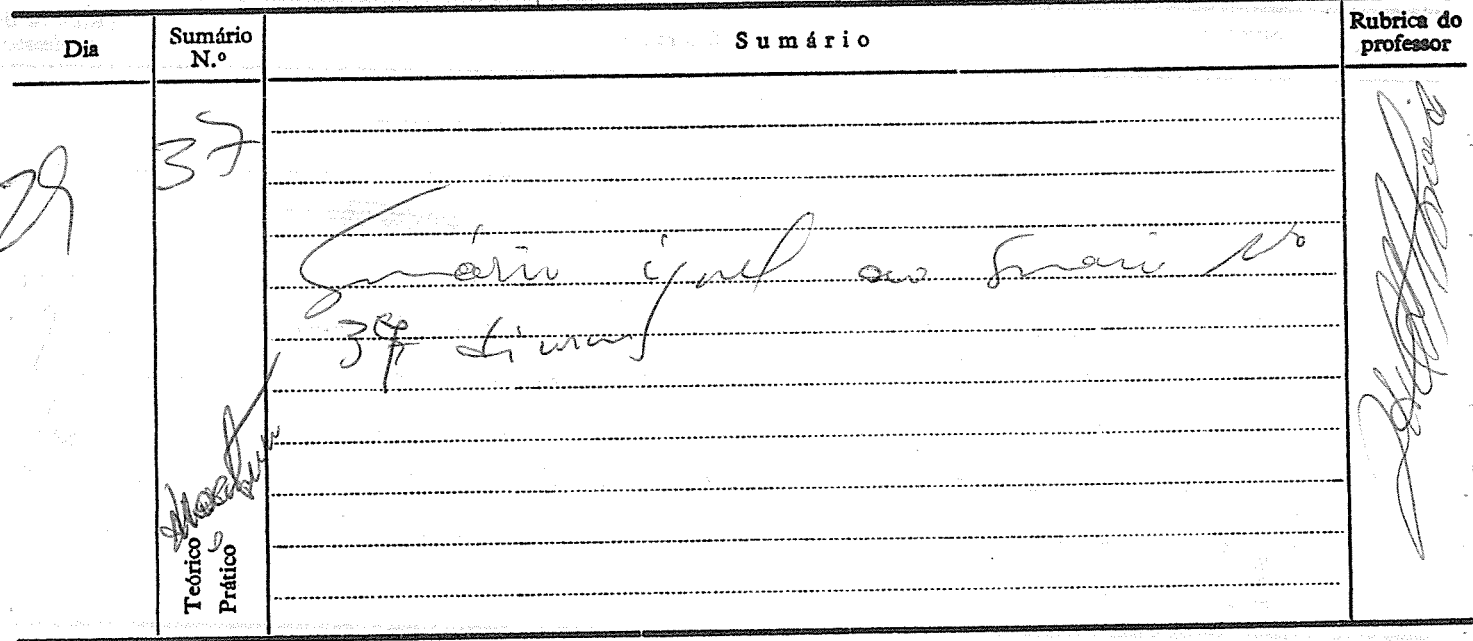 Dia
Sumário
N.º
Sumário
Rubrica do
professor
29
37
Sumário igual ao Sumário Nº
37
Teórico
Prático